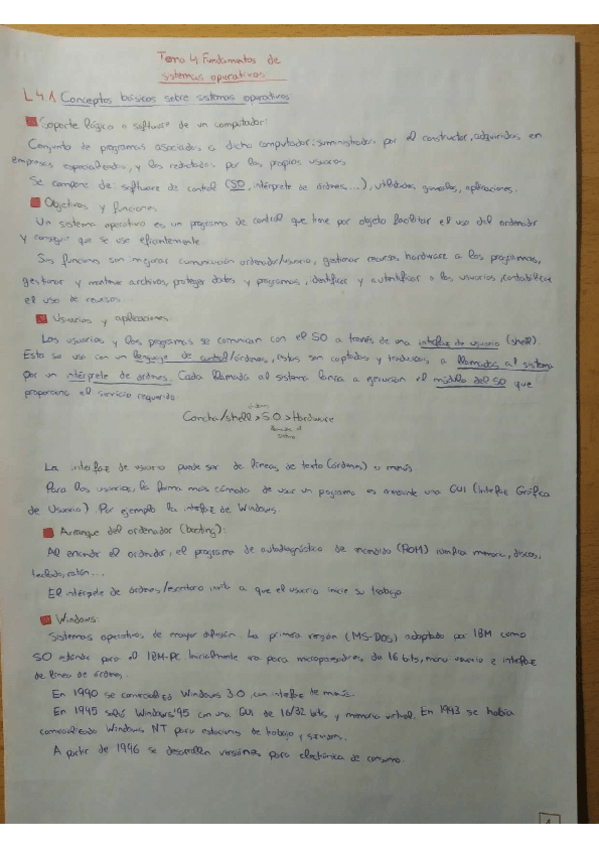 Tema 4 Fundamentos de
sistemas operativos
L 4.1 Conceptos básicos sobre sistemas operativos
Soporte lógico o software de un computador:
Conjunto de programas asociados a dicho computador: suministrados por el constructor, adquiridos en
empresas especializadas, y los redactados por los propios usuarios
Se compone de: software de control (SO, intérprete de órdenes...), utilidades generales, aplicaciones.
Objetivos y funciones
Un sistema operativo es un programa de control que tiene por objeto facilitar el uso del ordenador
y conseguir que se use eficientemente
Sus funciones son mejorar comunicación ordenador/usuario, gestionar recursos hardware a los programas,
gestionar y mantener archivos, proteger datos y programas, identificar y autentificar a los usuarios, contabilizar
el uso de recursos.
Usuarios y aplicaciones
Los usuarios y los programas se comunican con el SO a través de una interfaz de usuario (shell).
Esta se usa con un lenguaje de control/órdenes, éstas son captadas y traducidas a llamadas al sistema
por un intérprete de órdenes. Cada llamada al sistema lanza a ejecución el módulo del SO que
proporciona el servicio requerido.
Concha/shell > S.O > Hardware
llamada al
sistema
La interfaz de usuario puede ser de líneas, de texto (órdenes) o menús
Para los usuarios, la forma más cómoda de usar un programa es mediante una GUI (Interfaz Gráfica
de Usuario) Por ejemplo la interfaz de Windows.
Arranque del ordenador (booting):
Al encender el ordenador, el programa de autodiagnóstico de encendido (ROM) verifica memoria, discos,
teclado, ratón...
El intérprete de órdenes/escritorio invita a que el usuario inicie su trabajo
Windows:
Sistemas operativos de mayor difusión. La primera versión (MS-DOS) adoptado por IBM como
SO estándar para el IBM-PC. Inicialmente era para microprocesadores de 16 bits, mono usuario e interfaz
de línea de órdenes.
En 1990 se comercializó Windows 3.0, con interfaz de menús.
En 1945 salió Windows'95 con una GUI de 16/32 bits y memoria virtual. En 1943 se había
comercializado Windows NT para estaciones de trabajo y servidores.
A partir de 1996 se desarrollan versiones para electrónica de consumo.
1